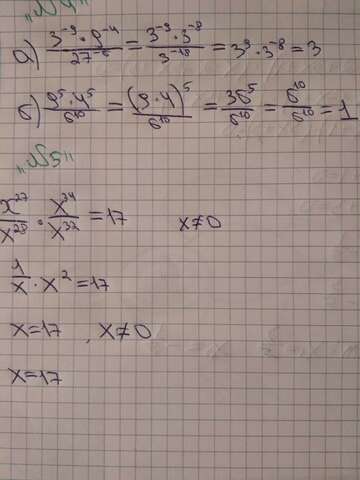 "№4"
а) 3⁻⁹ · 9⁻⁴ / 27⁻⁶ = 3⁻⁹ · 3⁻⁸ / 3⁻¹⁸ = 3⁹ · 3⁻⁸ = 3
б) 9⁵ · 4⁵ / 6¹⁰ = (9 · 4)⁵ / 6¹⁰ = 36⁵ / 6¹⁰ = 6¹⁰ / 6¹⁰ = 1
"№5"
x²⁷ / x²⁸ · x³⁴ / x³² = 17 x≠0
1 / x · x² = 17
x=17 , x≠0
x=17